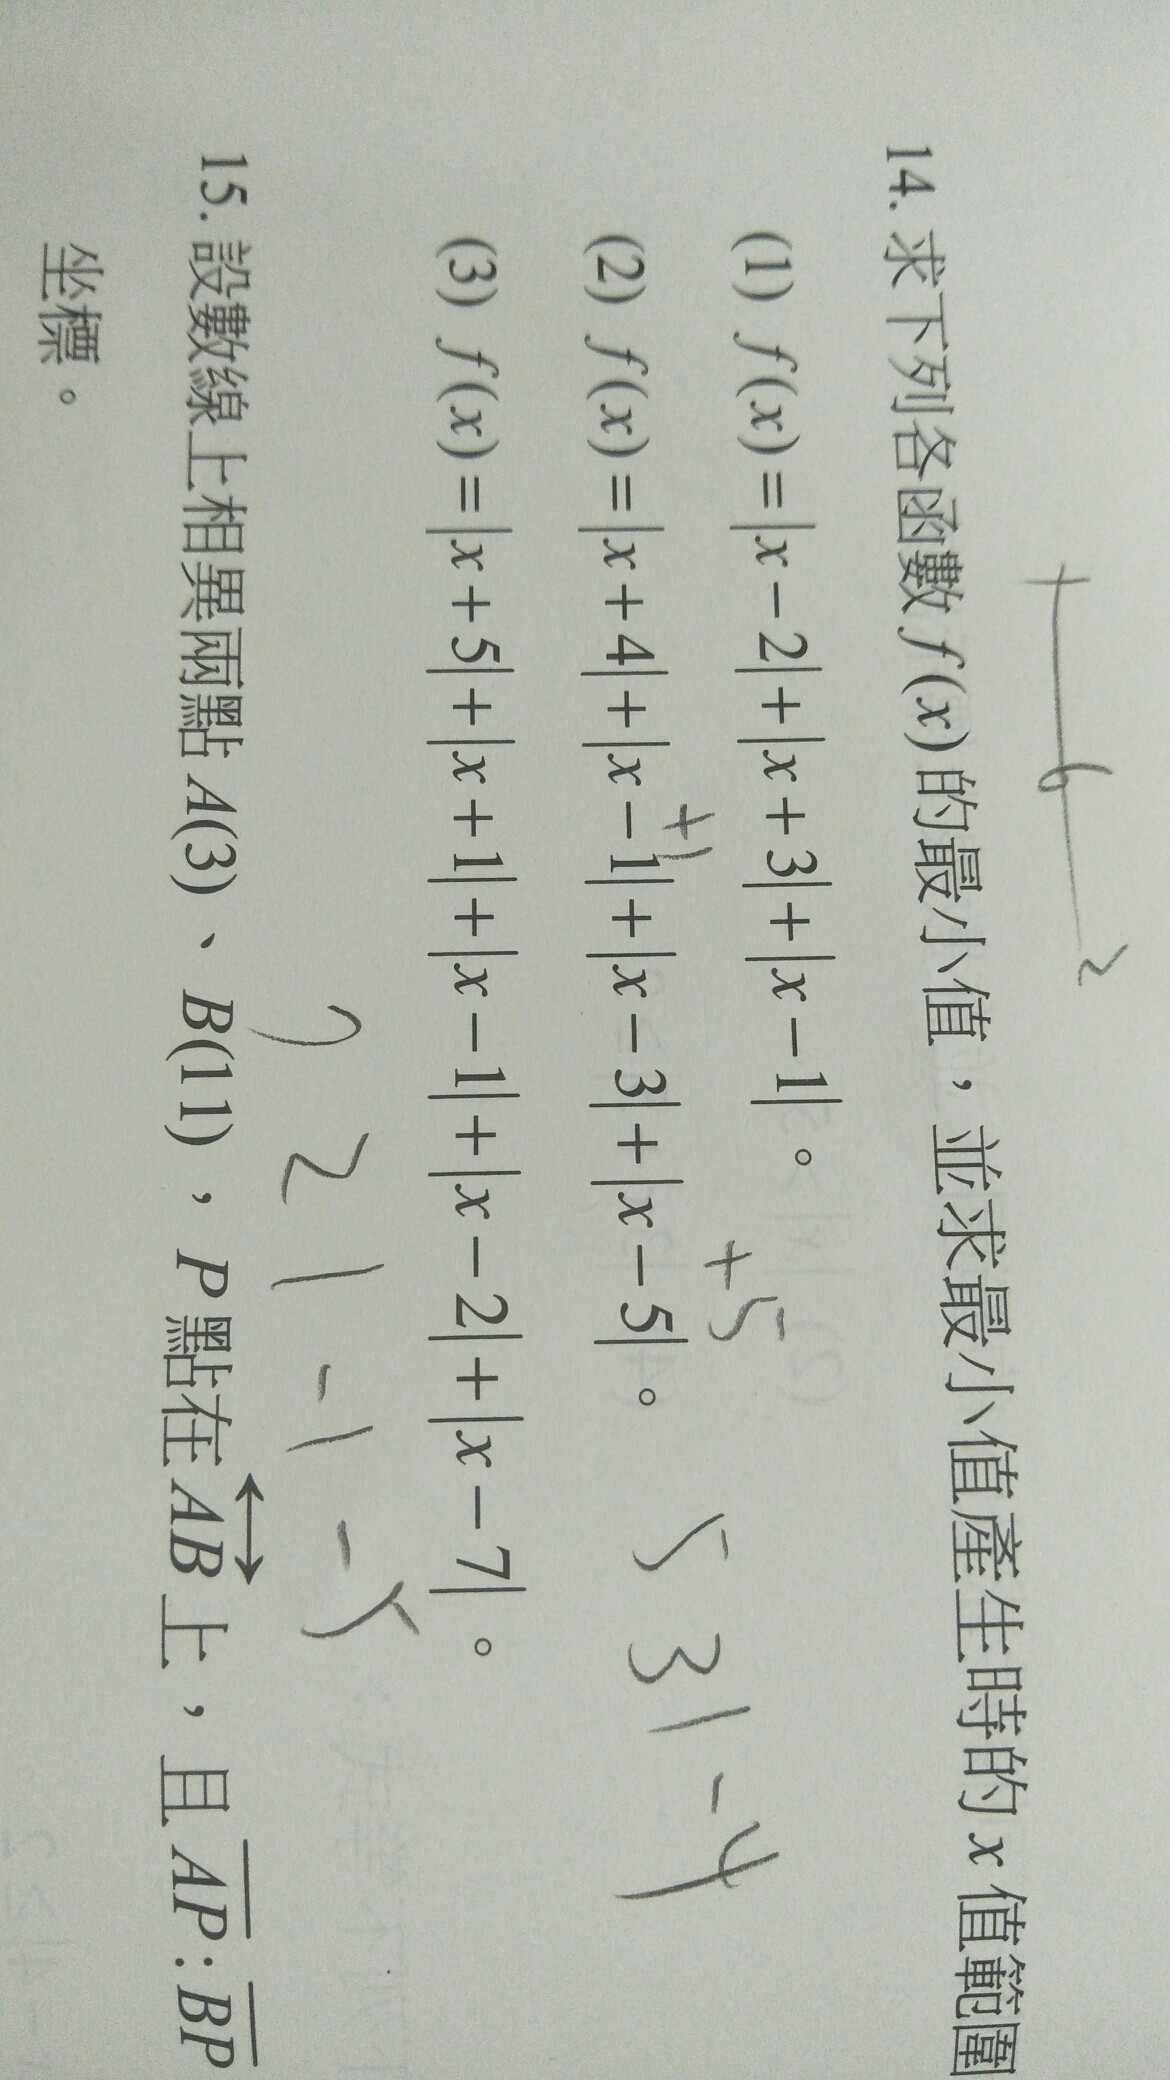 2
14. 求下列各函數 f(x) 的最小值，並求最小值產生時的 x 值範圍
(1) f(x)=|x-2|+|x+3|+|x-1|。
+1 +5
(2) f(x)=|x+4|+|x-1|+|x-3|+|x-5|。 5 3 1 -4
(3) f(x)=|x+5|+|x+1|+|x-1|+|x-2|+|x-7|。
2 1 -1 -5
15. 設數線上相異兩點 A(3)、B(11)，P 點在 AB 上，且 AP:BP
坐標。